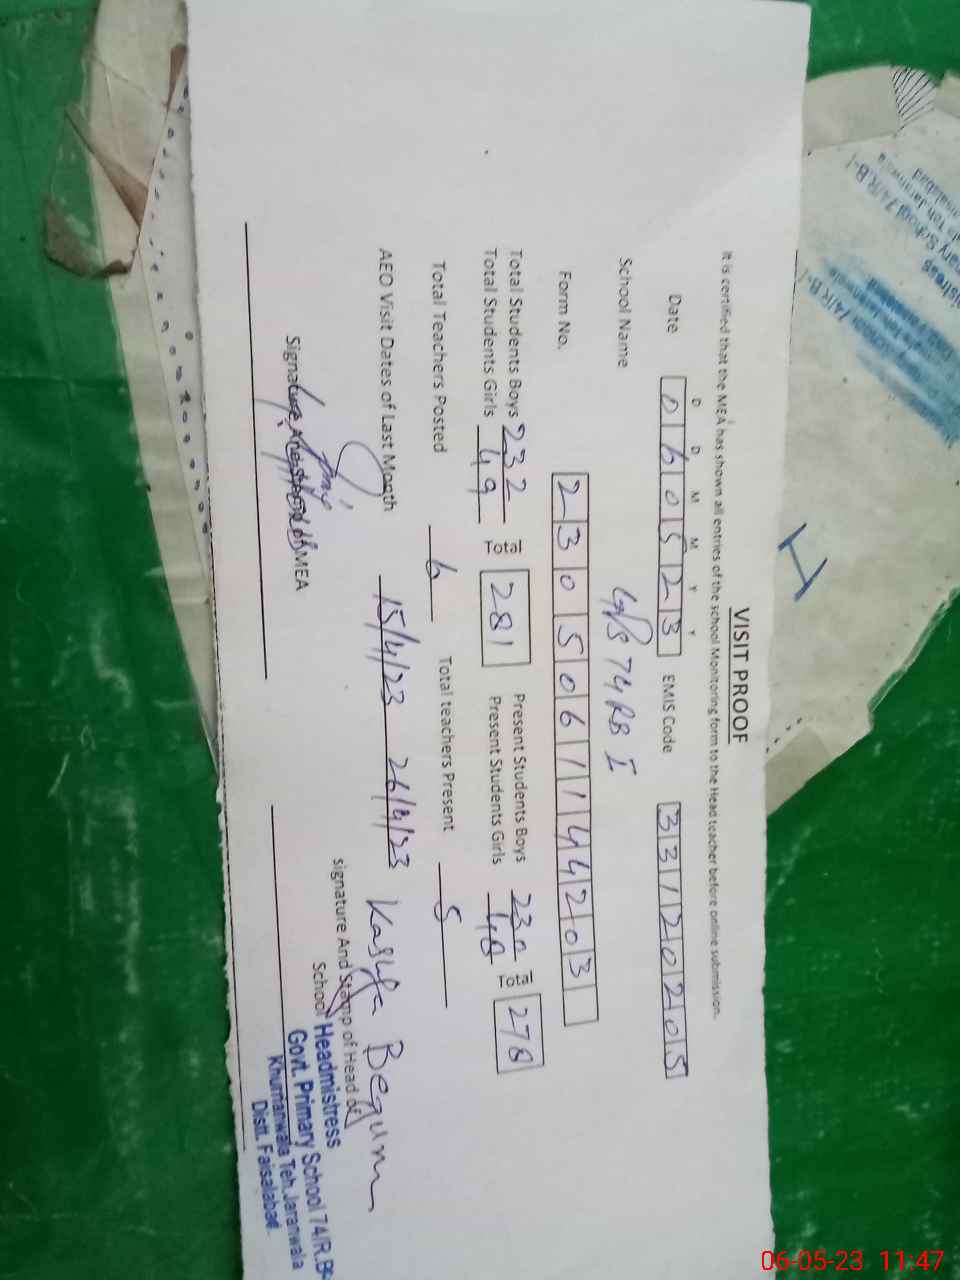 VISIT PROOF
It is certified that the MEA has shown all entries of the school Monitoring form to the Head teacher before online submission.
D D M M Y Y
Date 060523 EMIS Code 33120205
School Name G/PS 74 RB I
Form No. 2305061144203
Total Students Boys 232 Total 281 Present Students Boys 230 Total 278
Total Students Girls 49 Present Students Girls 48
Total Teachers Posted 6 Total teachers Present 5
AEO Visit Dates of Last Month 15/4/23 26/4/23
Kasufa Begum
Signature And Stamp of MEA
signature And Stamp of Head of
School
Headmistress
Govt. Primary School 74/R.B-I
Khumanwala Teh. Jaranwala
Distt. Faisalabad.
H
School 74/R.B-I
Teh. Jaranwala
74/R.B-I
06-05-23 11:47